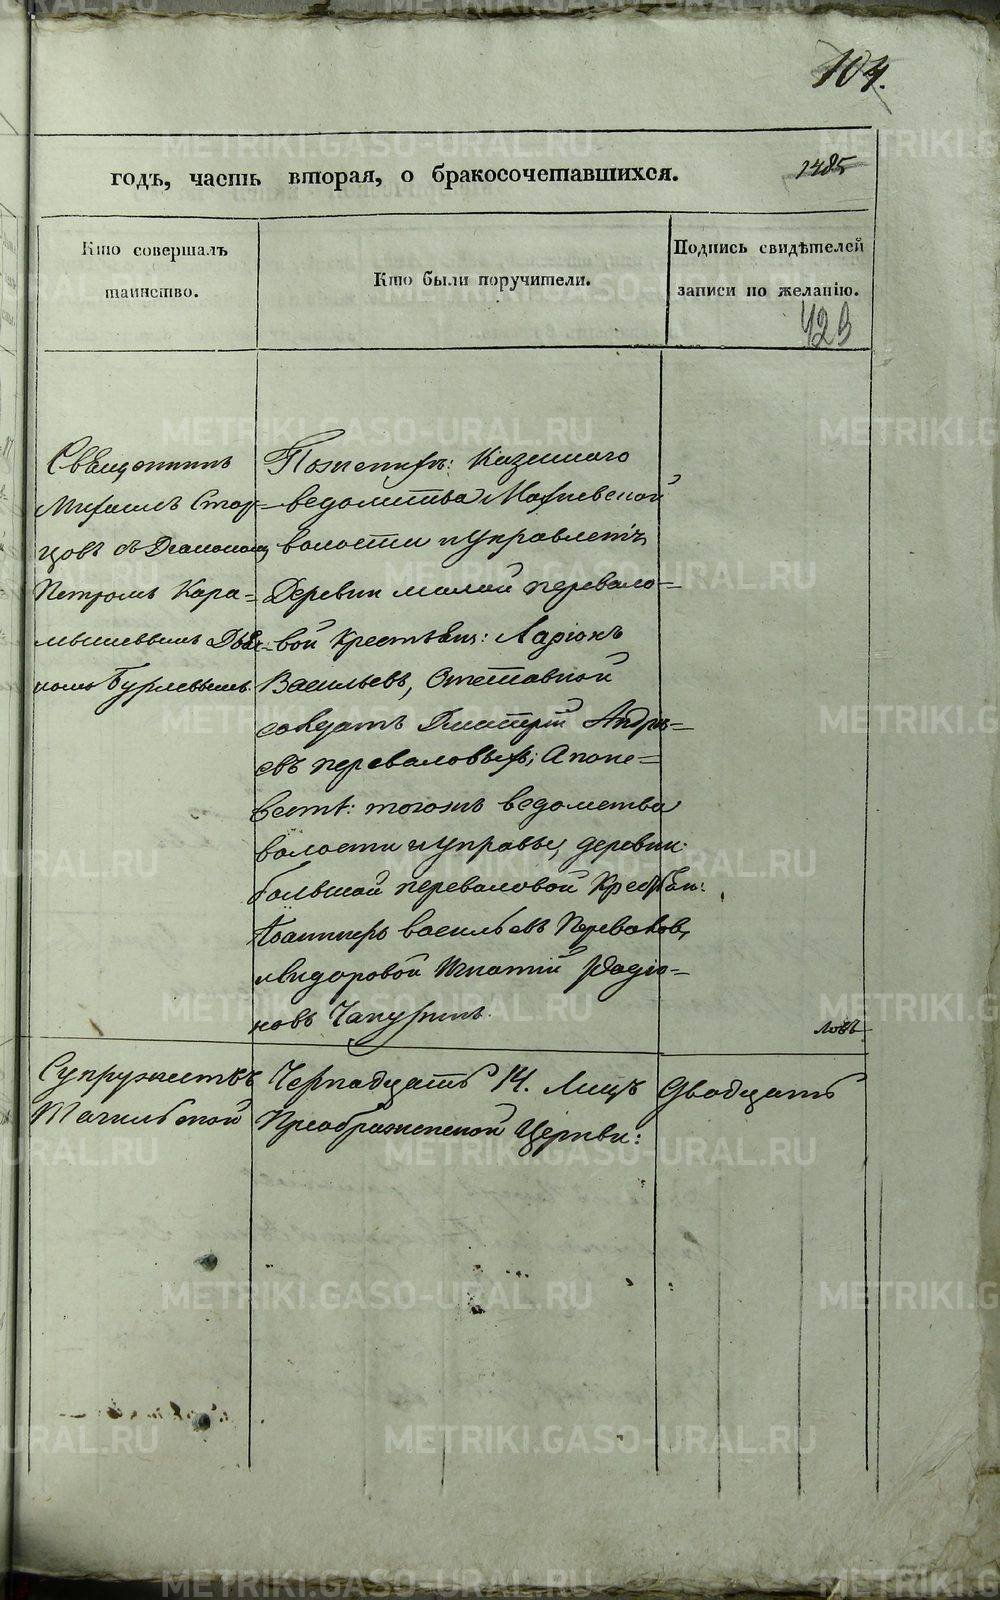 104.
годъ, часть вторая, о бракосочетавшихся.
1485
Кто совершалъ
таинство.
Кто были поручители.
Подпись свидѣтелей
записи по желанію.
423
Священникъ
Михаилъ Стар-
цовъ съ Діакономъ
Петромъ Кара-
мышевымъ
Бурлевымъ.
По женихѣ: Казеннаго
ведомства Махневской
волости и Управленія,
Деревни малой перевало-
вой Крестьянъ: Ларіонъ
Васильевъ, Отставной
солдатъ Дмитрій Андре-
евъ переваловыхъ; А по не-
вестѣ: тогожъ ведомства
волости и управы, деревни
большой переваловой
васильевъ Перевалов,
Игнатій Родіо-
новъ
ловъ
Супружествъ
Четырнадцать 14. Лицъ
Двадцать
Тагильской
Преображенской Церкви:
METRIKI.GASO-URAL.RU